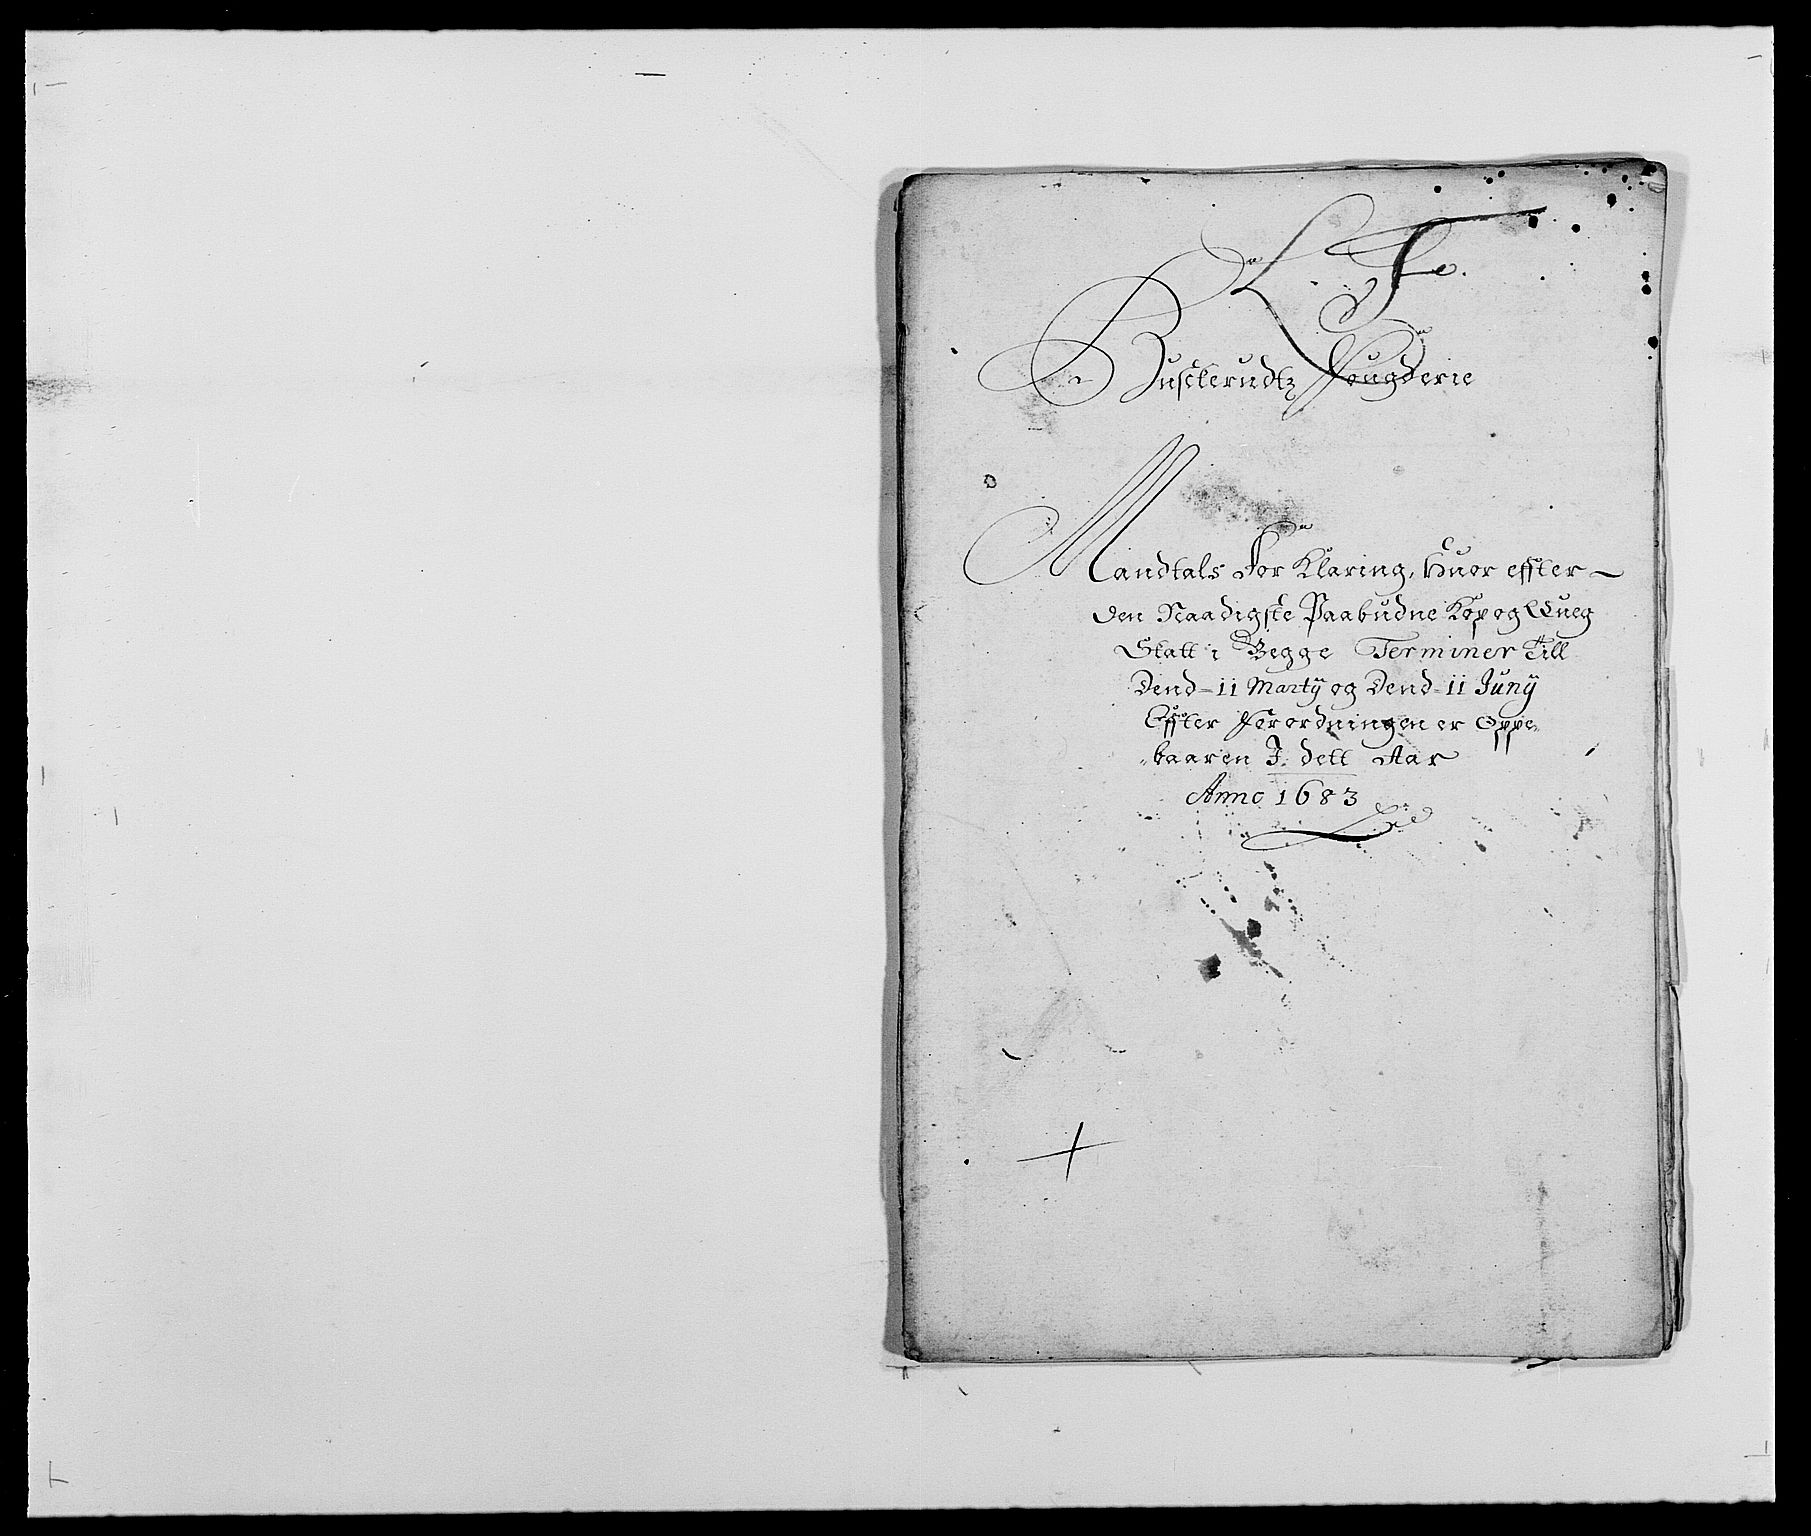 Buscterudtz Fougderie
Mandtals Forklaring, Huor effter
den Naadigste Paabudne Kop og Qveg
Skatt i Begge Terminer Till
Dend 11 Marty og Dend 11 Juny
Effter Forordningen er Oppe„
„baaren I dett Aar
Anno 1683